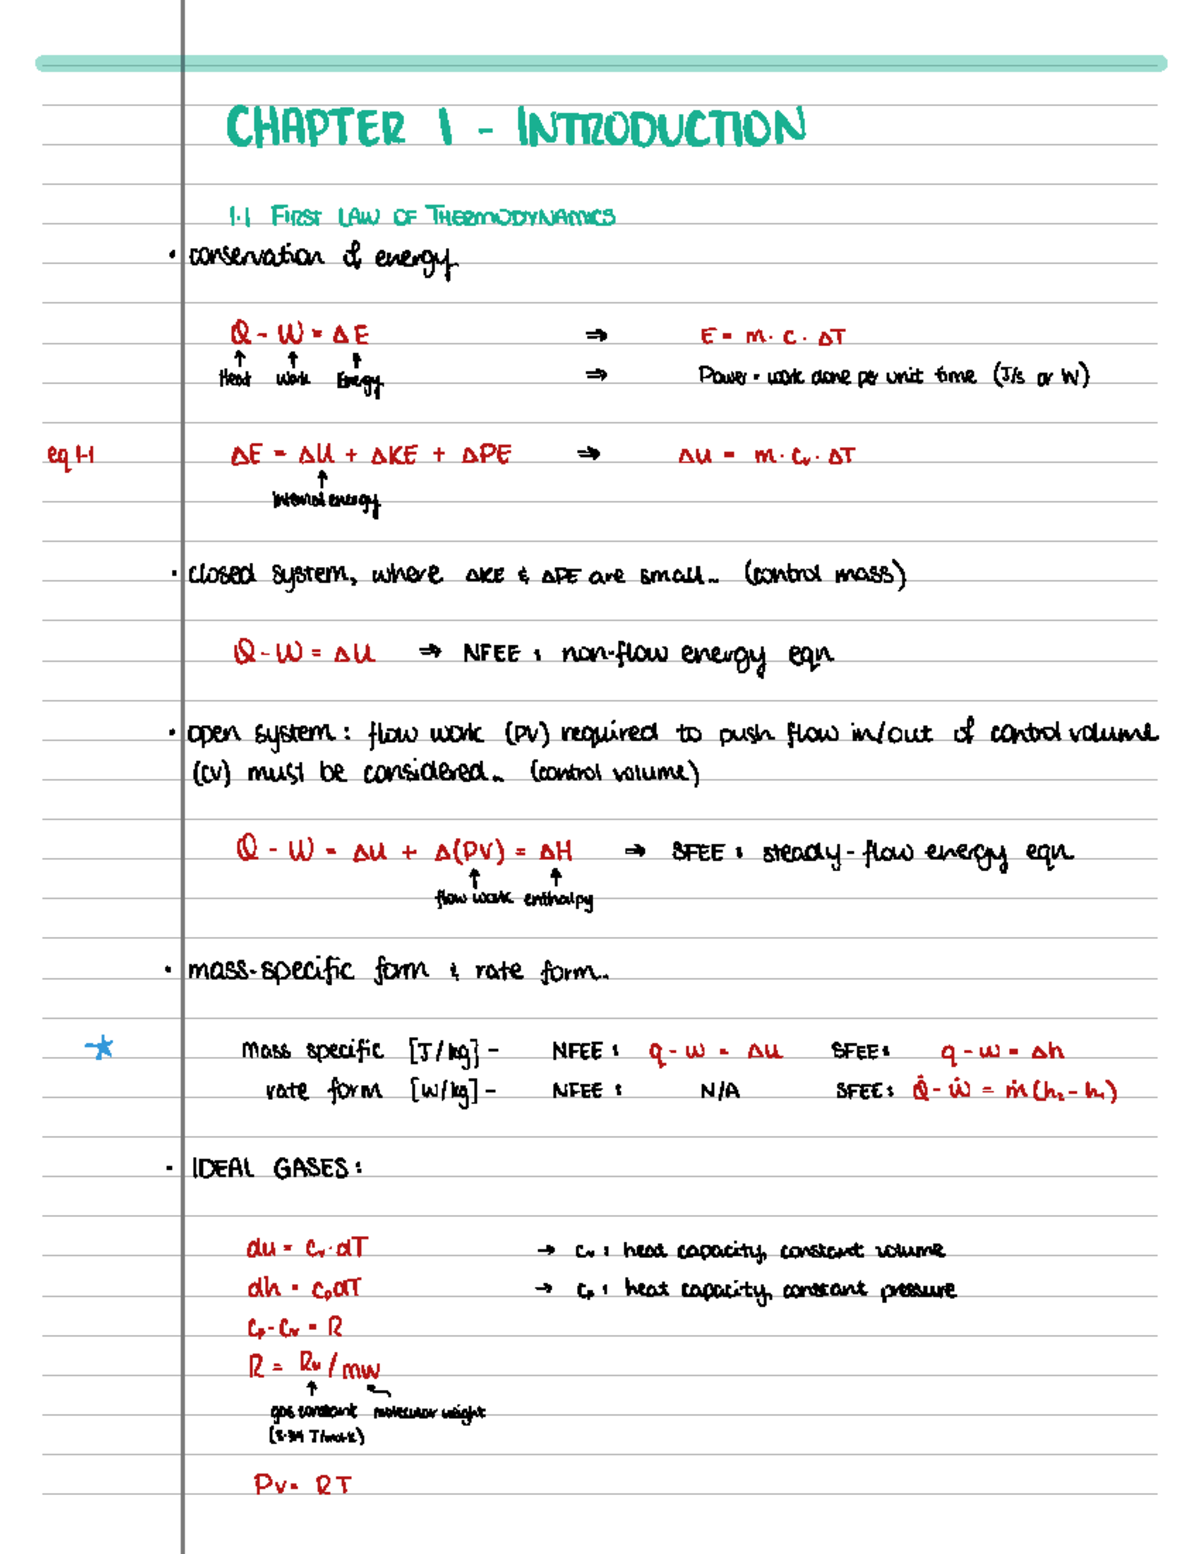 CHAPTER 1 - INTRODUCTION
1.1 FIRST LAW OF THERMODYNAMICS
• conservation of energy
Q - W = ΔE ⇒ E = m · c · ΔT
↑ Heat ↑ Work ↑ Energy ⇒ Power = work done per unit time (J/s or W)
eq 1-1 ΔE = ΔU + ΔKE + ΔPE ⇒ ΔU = m · Cv · ΔT
↑
internal energy
• closed system, where ΔKE & ΔPE are small.. (control mass)
Q - W = ΔU ⇒ NFEE : non-flow energy eqn
• open system : flow work (PV) required to push flow in/out of control volume
(CV) must be considered.. (control volume)
Q - W = ΔU + Δ(PV) = ΔH ⇒ SFEE : steady-flow energy eqn
↑ ↑
flow work enthalpy
• mass-specific form & rate form..
mass specific [J/kg] - NFEE : q - w = Δu SFEE: q - w = Δh
rate form [W/kg] - NFEE : N/A SFEE: Q̇ - Ẇ = ṁ(h₂ - h₁)
• IDEAL GASES:
du = cv · dT → cv : heat capacity, constant volume
dh = cpdT → cp : heat capacity, constant pressure
cp - cv = R
R = Ru / mw
↑
gas constant molecular weight
Pv = RT